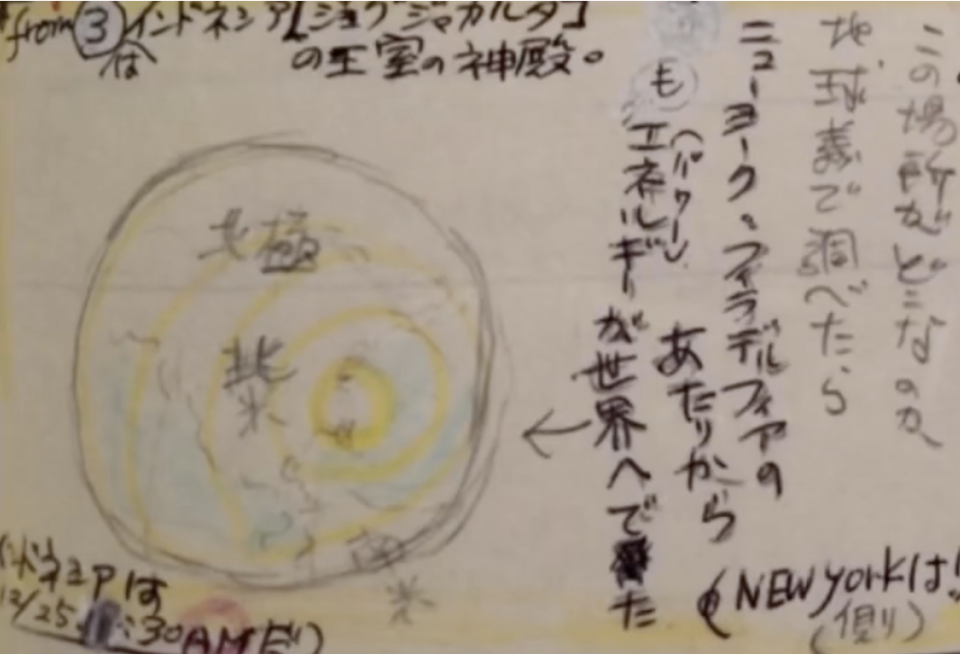 from ③ インドネシア[ジョグジャカルタ]
は の王室の神殿。
この場所がどこなのか、
地球義で調べたら
ニューヨーク、フィラデルフィアの
あたりから
も エネルギー(パワー)が世界へでた
北極
北米
南米
←
インドネシアは
12/25 :30AMだ)
(NEW yorkは!
(側)